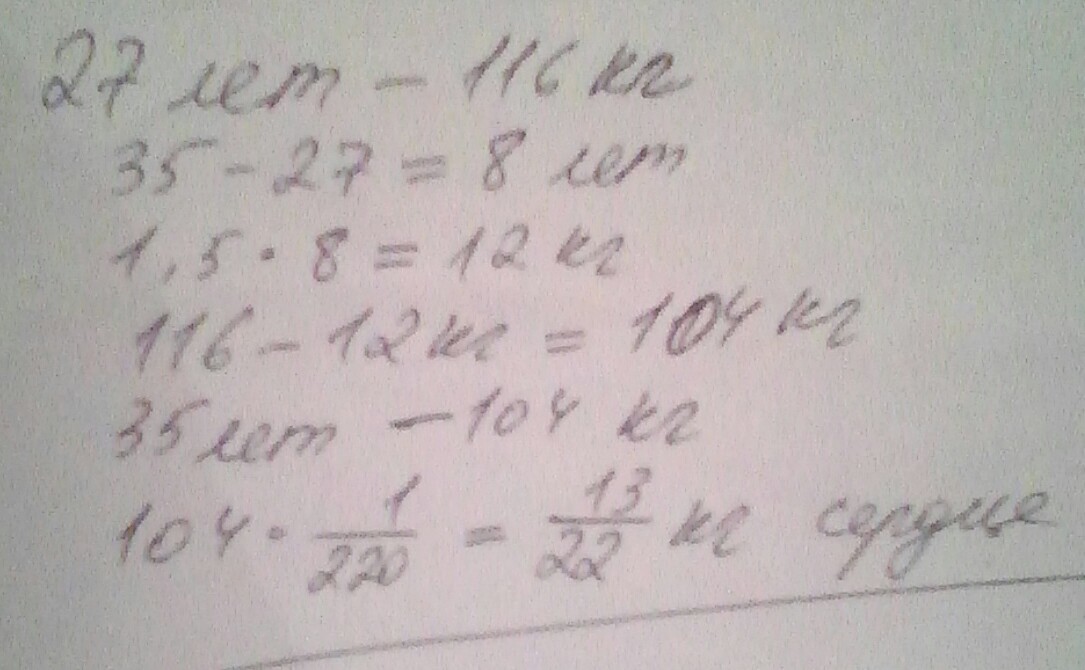 27 лет - 116 кг
35 - 27 = 8 лет
1,5 · 8 = 12 кг
116 - 12 кг = 104 кг
35 лет - 104 кг
104 · 1/220 = 13/22 кг сердце